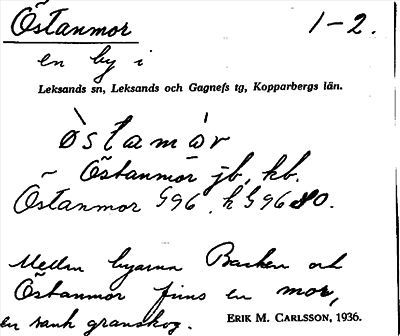 Östanmor 1-2.
en by i
Leksands sn, Leksands och Gagnefs tg, Kopparbergs län.
ò̀stamár
Östanmor jb, kb.
Östanmor G96. k G96 80.
Mellan byarna Backen och
Östanmor finns en mor,
en sank granskog. ERIK M. CARLSSON, 1936.